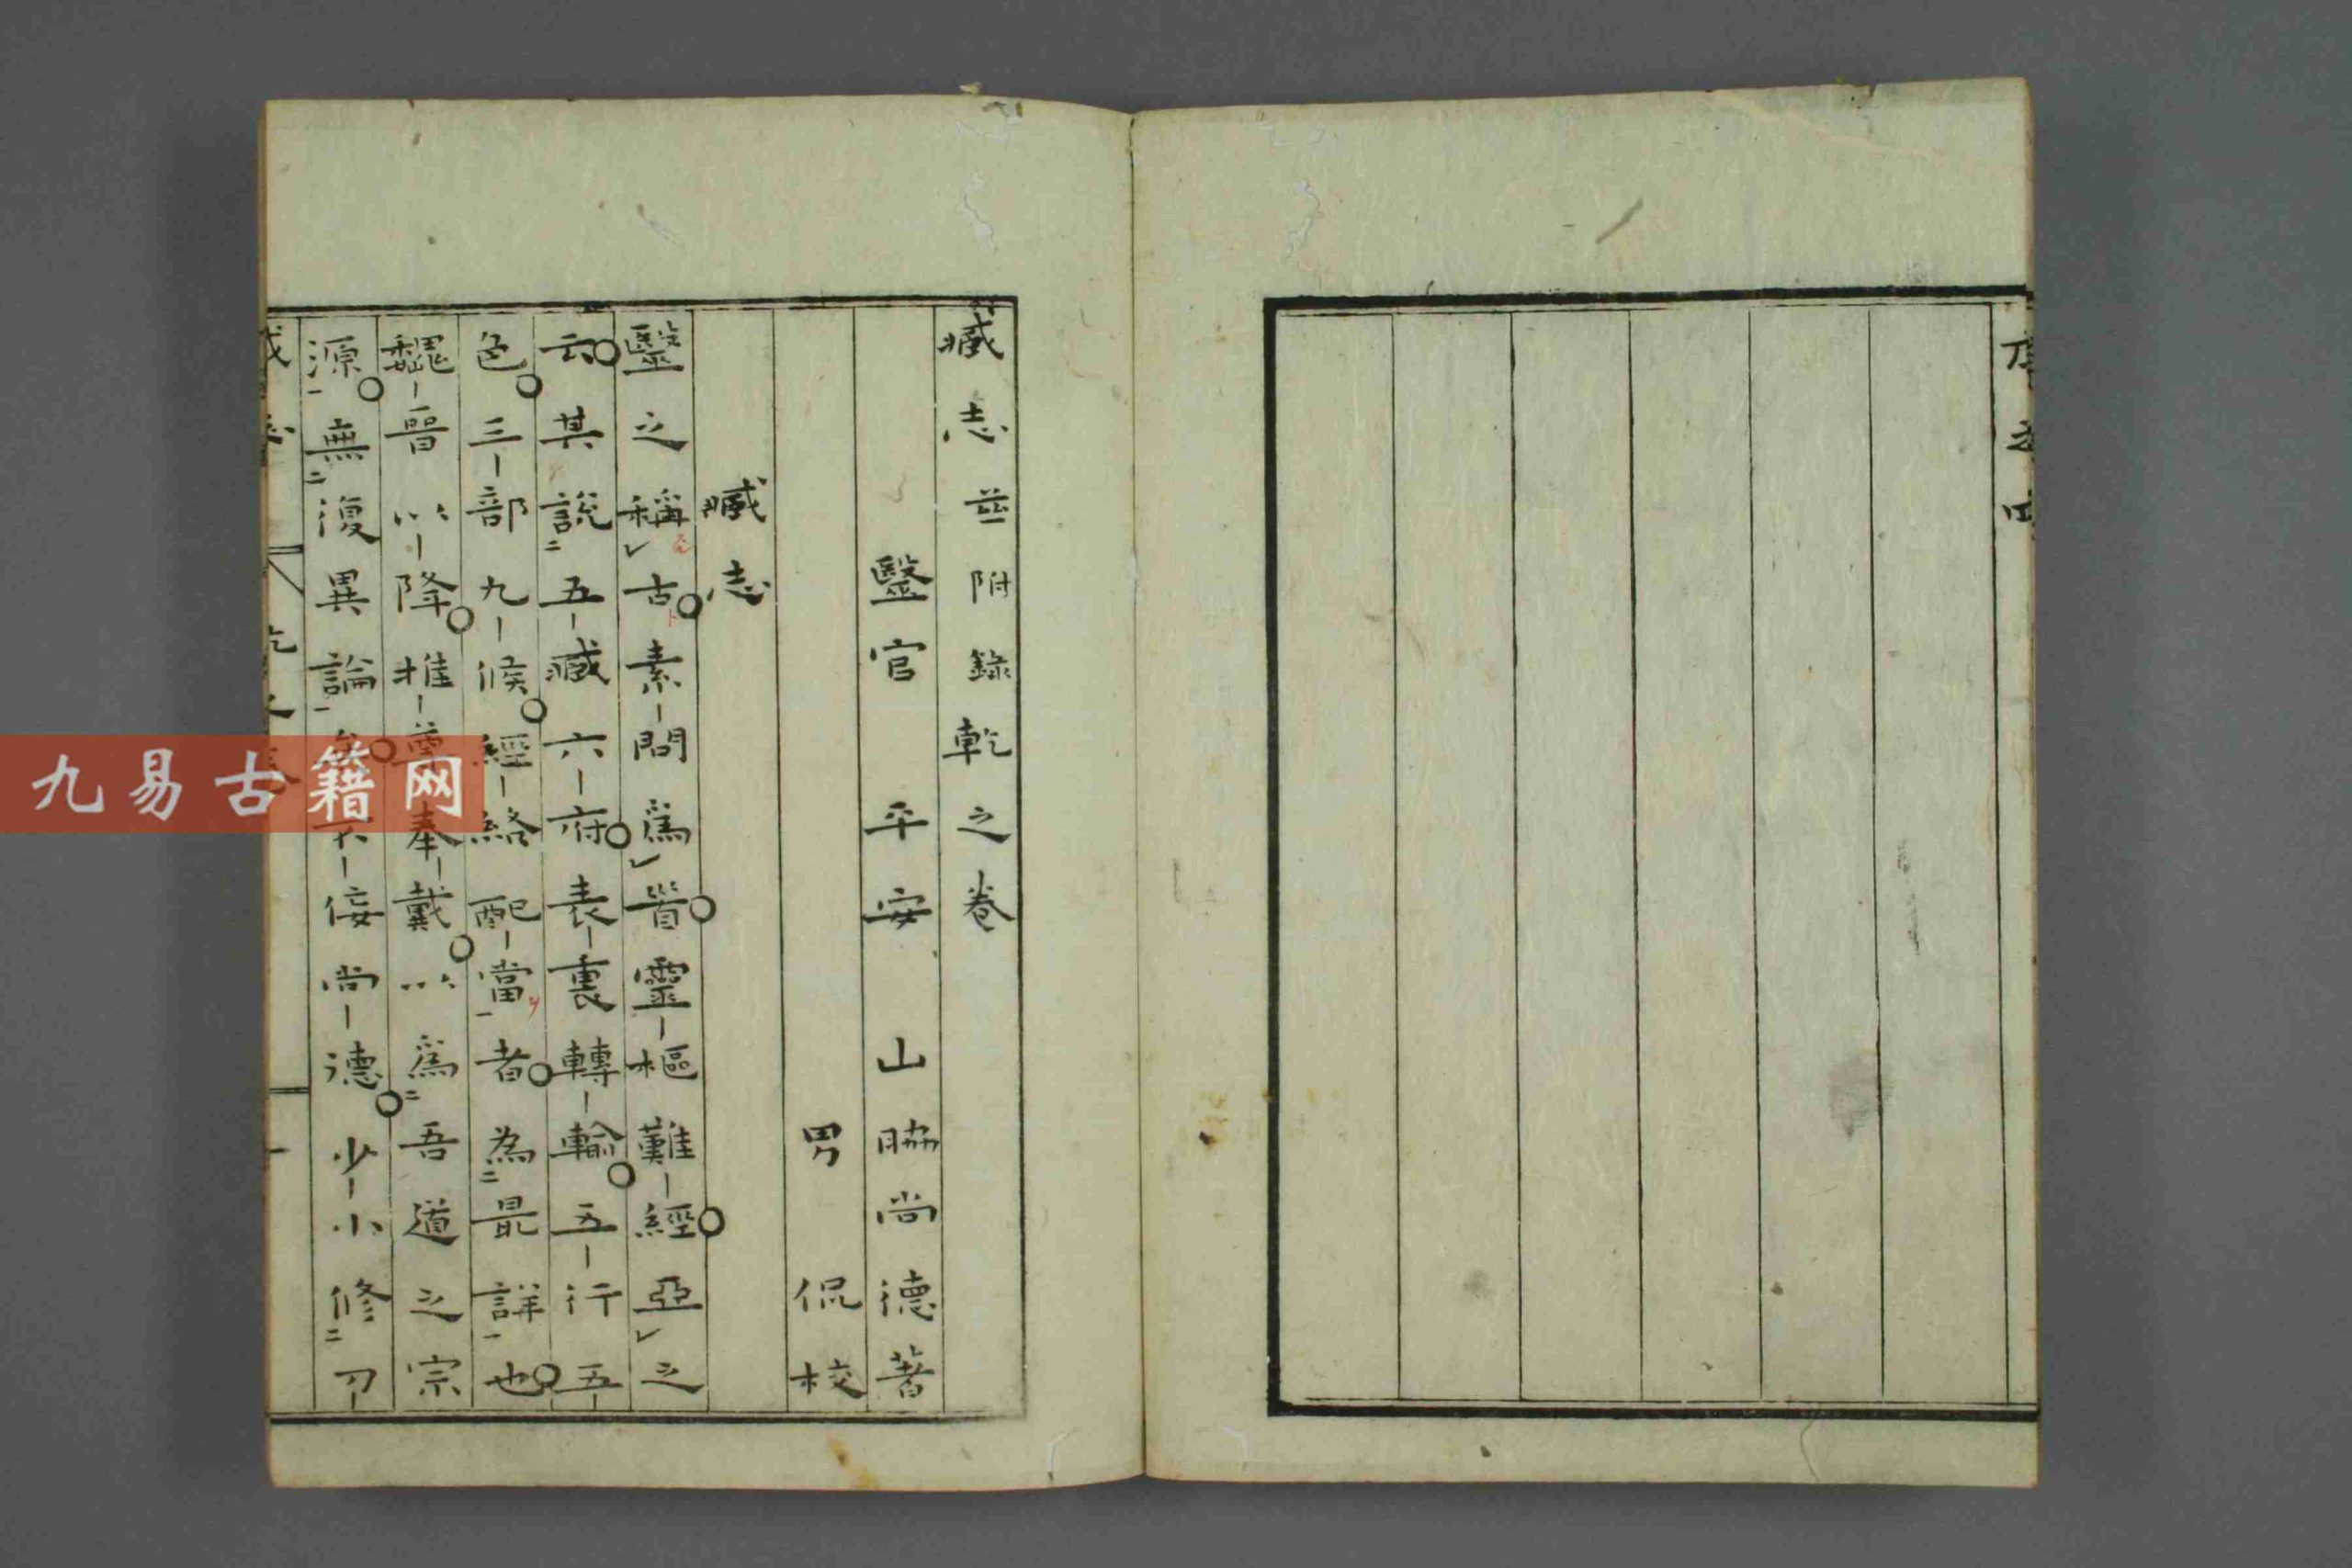 臓志並附錄乾之卷
醫官 平安 山脇尚德著
男 侃校
臓志
醫之稱古素問爲首靈樞難經亞之
云其說五臓六府表裏轉輸五行五
色三部九候經絡配當者為最詳也
魏晉以降推尊奉戴以爲吾道之宗
源無復異論矣不佞尚德少小修刀
九易古籍网